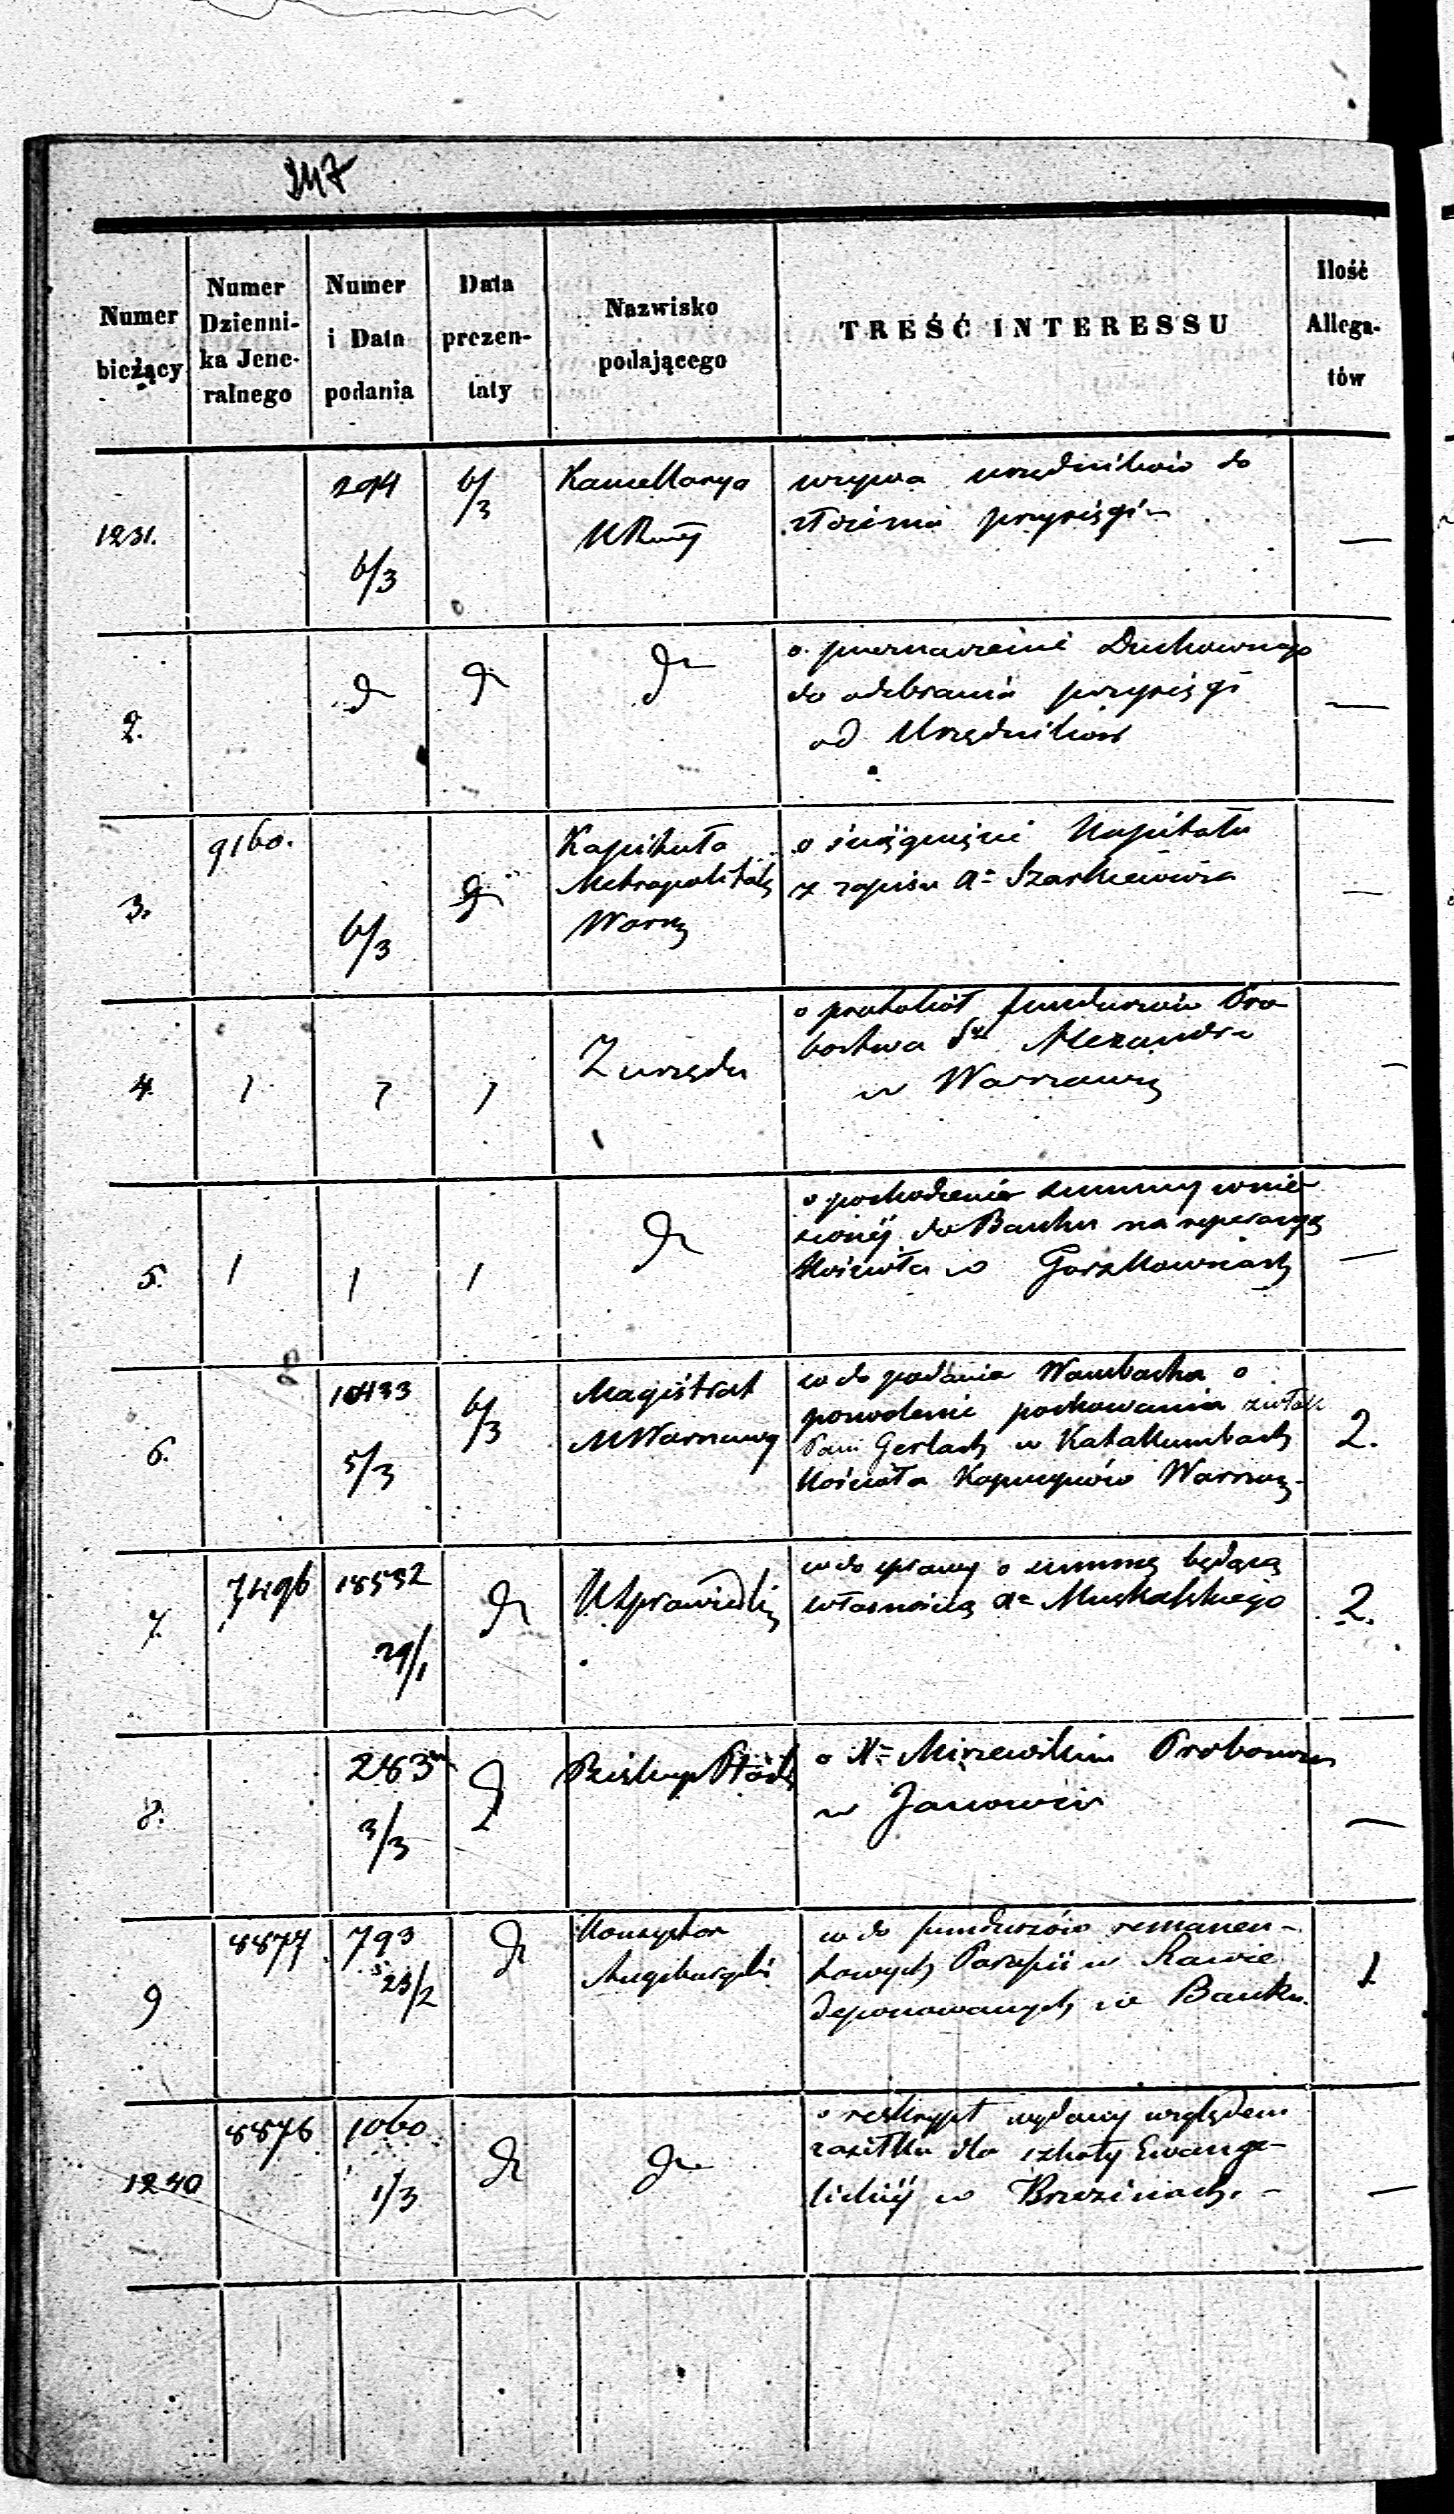 247
Numer bieżący
Numer Dzienni- ka Jene- ralnego
Numer i Data podania
Data prezen- taty
Nazwisko podającego
TREŚĆ INTERESSU
Ilość Allega- tów
1231.
294
6/3
6/3
Kancellarya
wzywa urzędników do
złożenia przysięgi –
—
2.
d
d
d
o przeznaczenie Duchownego
do odebrania przysięgi
od Urzędników
—
3.
9160.
6/3
d
Kapituła
Metropolital
Warsz
o ściągnięcie Kapitału
z zapisu
—
4.
Z urzędu
o protokół funduszów Pro
bostwa Sgo Alexandra
w Warszawie
—
5.
d
o pochodzenie summy wnie
sionej do Banku na reperacyą
Kościoła w Gorzkowicach
—
6.
10433
5/3
6/3
Magistrat
M Warszawy
w do podania Wambacha o
pozwolenie pochowania zwłok
Pani Gerlach w Katakumbach
Kościoła Kapucynów Warszaw.
2.
7.
7496
18532
29/1
d
K Sprawiedli
w do sprawy o summę będącą
własnością
2.
8.
263
3/3
d
Biskup Płock
o Mirzewskim Proboszczu
w Janowie
—
9
8877
793
23/2
d
Konsystor
Augsburgski
w do funduszów remanen-
towych Parafii w Rawie
deponowanych w Banku.
1
1240
8876
1060
1/3
d
d
o reskrypt wydany względem
zasiłku dla szkoły Ewange-
lickiej w Brzezinach. –
—